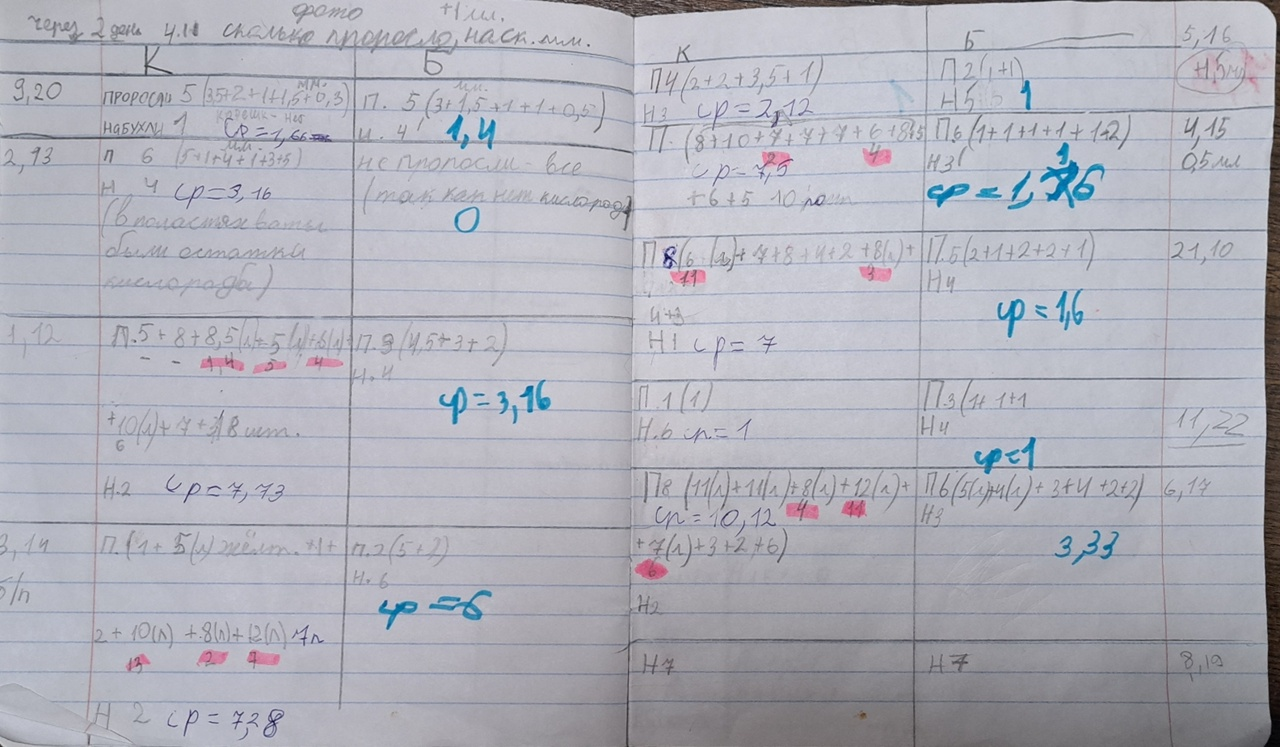 фото +1 мл.
через 2 день 4.11 сколько проросло, на ск. мм.
К Б
9,20 ПРОРОСЛИ 5 (3,5+2+1+1,5+0,3) мм.
НАБУХЛИ 1 ср=1,66
П. 5 (3+1,5+1+1+0,5) мм.
н. 4 1,4
2,13 П 6 (5+1+4+1+3+5) мм.
Н. 4 ср=3,16
(в полостях ваты
были остатки
кислорода)
не проросли - все
(так как нет кислорода)
0
1,12 П.5+8+8,5(л)+5(л)+8(л)+
1,4 5 4
+10(л)+7+3 8 шт.
6
Н.2 ср=7,73
П.3 (4,5+3+2)
Н.4
ср=3,16
3,14 П.(1+5(л) жёлт.+1+
б/п
2+10(л)+8(л)+12(л) 7л
13 2 7
Н 2 ср=7,28
П.2 (5+7)
Н.6
ср=6
К Б 5,16
П4 (2+2+3,5+1)
Н3 ср=2,12
П2 (1+1)
Н5 1
+1,5 мл
П. (8+10+7+7+7+6+8+5
2 4
ср=7,5
+6+5 10 раст
П6 (1+1+1+1+1+2)
Н3
ср=1,16
4,15
0,5 мл
П 8 (6 (л)+7+8+4+2+8(л)+
11 3
4+3
Н1 ср=7
П.5 (2+1+2+2+1)
Н4
ср=1,6
21,10
П.1 (1)
Н.6 ср=1
П.3 (1+1+1
Н4
ср=1
11,22
П8 (11(л)+11(л)+8(л)+12(л)+
ср=10,12 4 11
+7(л)+3+2+6)
6
Н2
П6 (5(л)+4(л)+3+4+2+2)
Н3
3,33
6,17
Н7 Н7 8,19